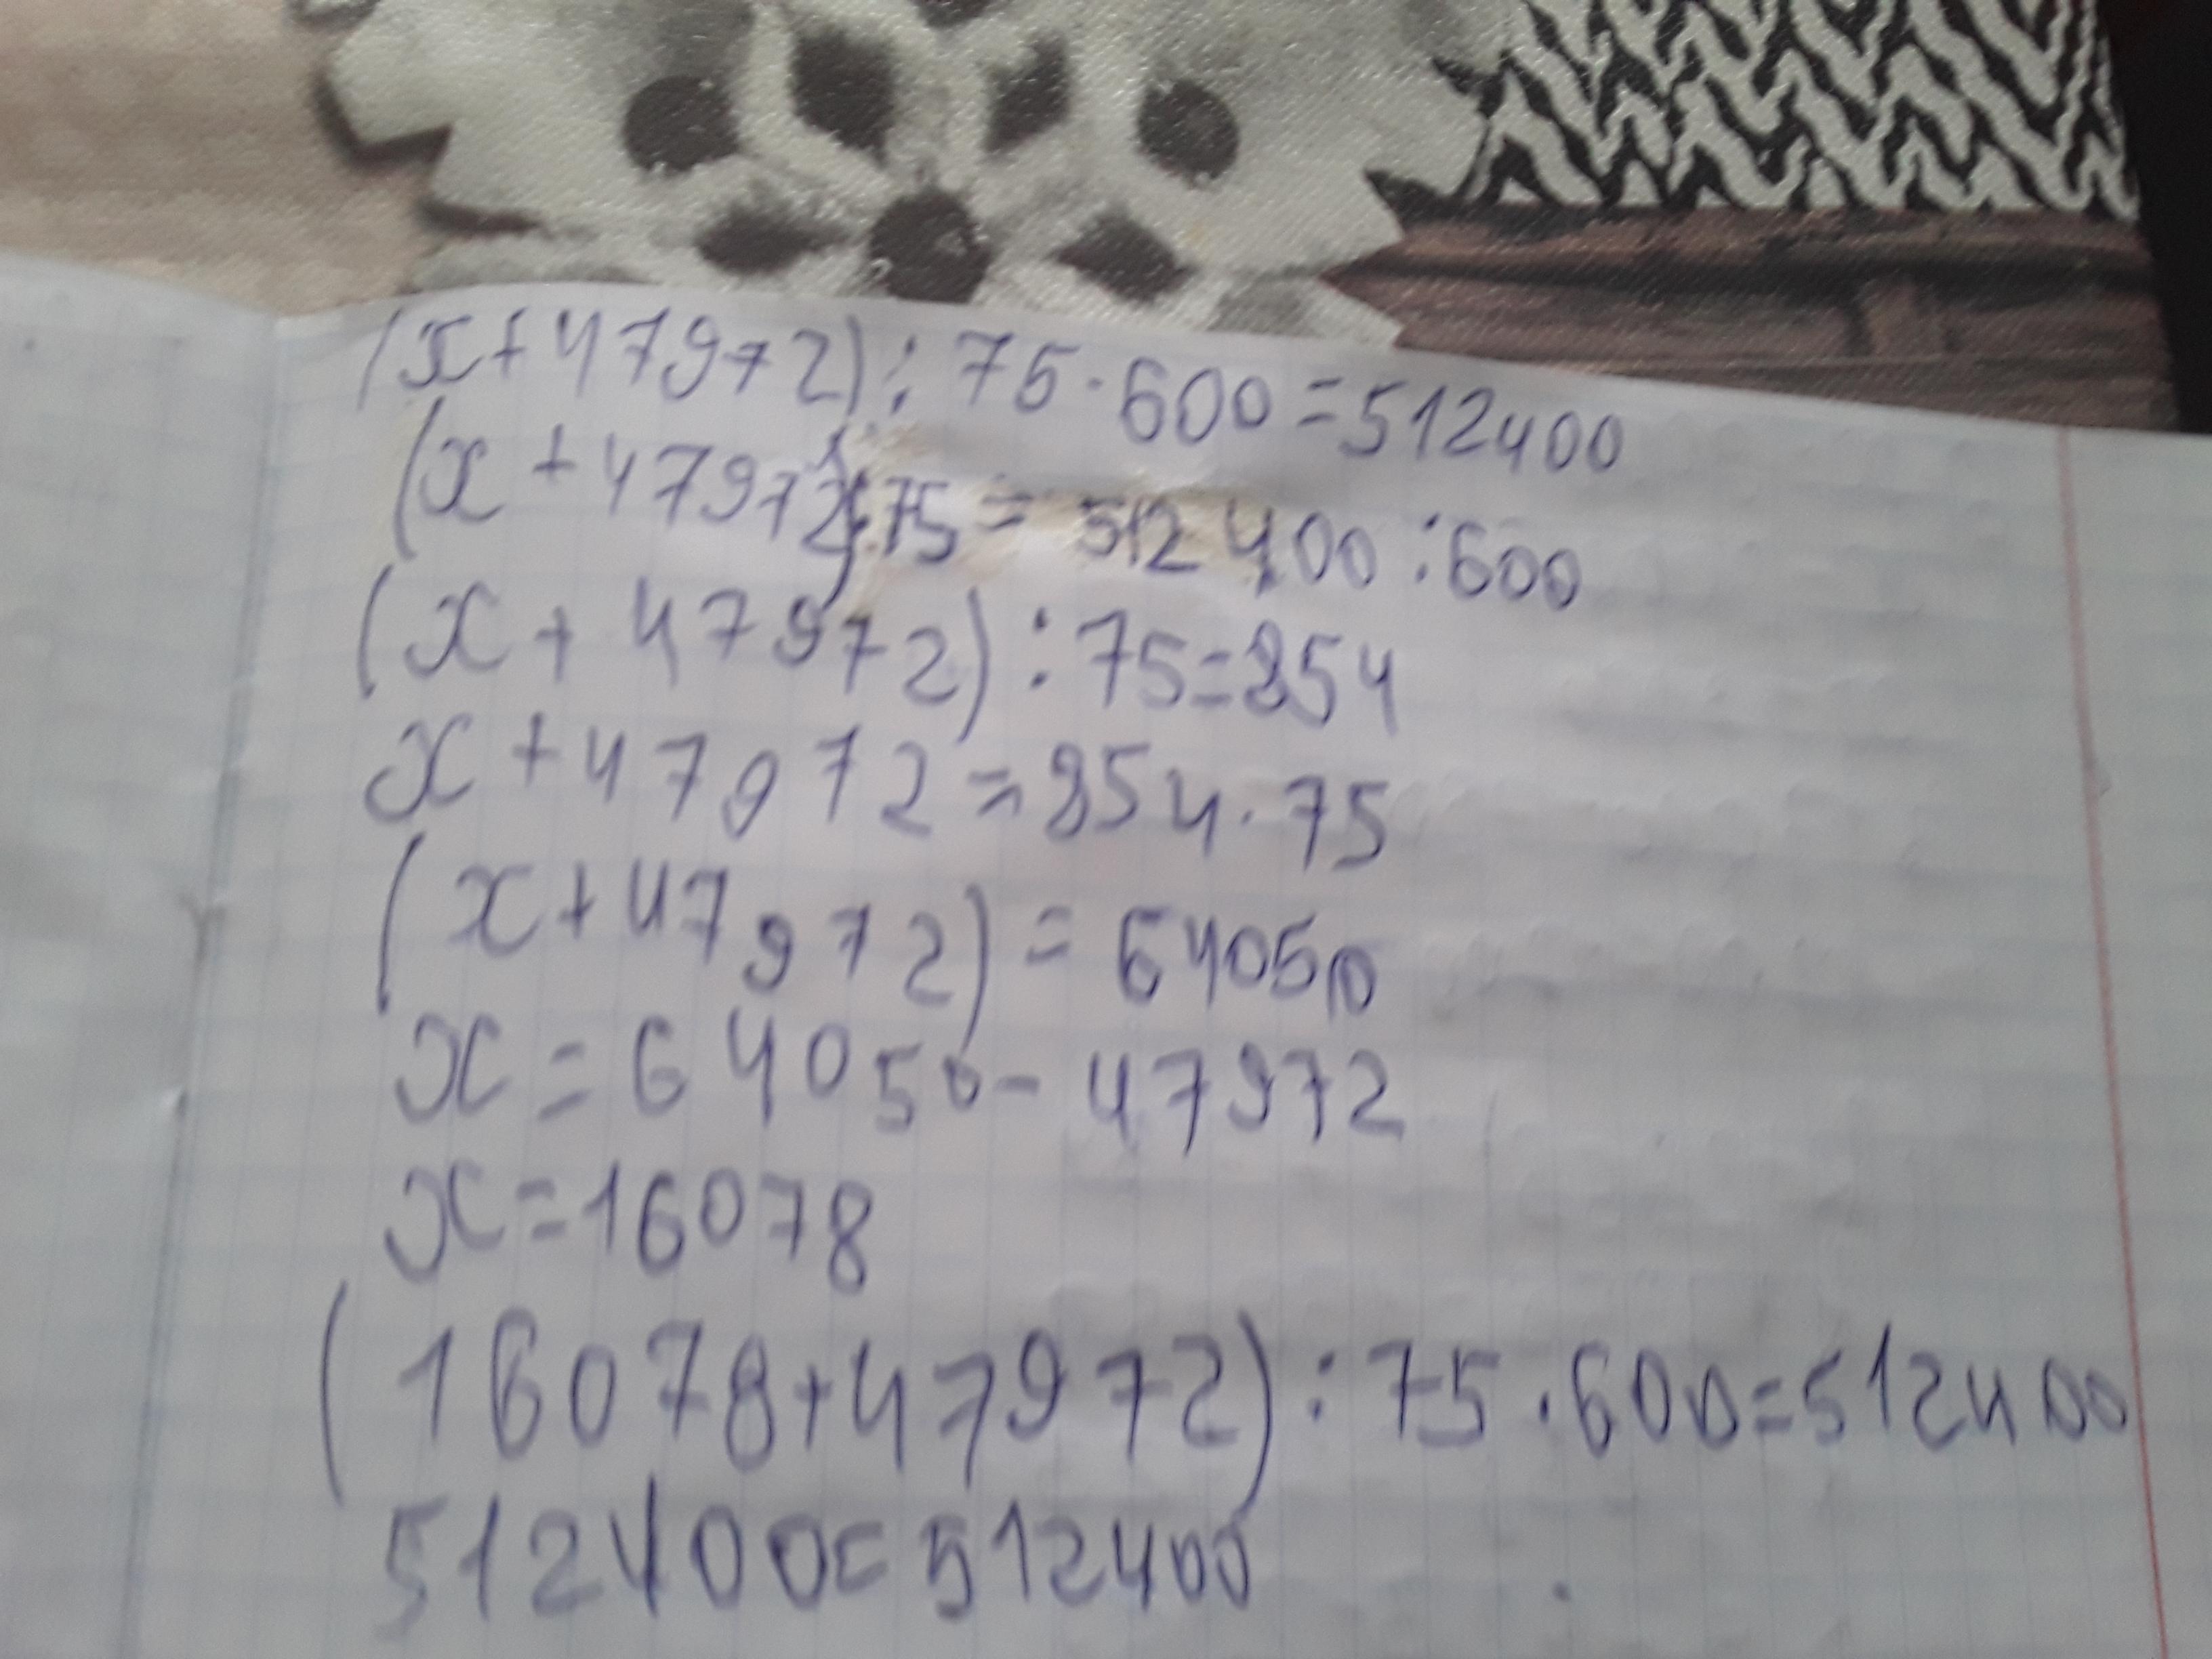 (x+47972):75·600=512400
(x+47972):75=512400:600
(x+47972):75=854
x+47972=854·75
(x+47972)=64050
x=64050-47972
x=16078
(16078+47972):75·600=512400
512400=512400